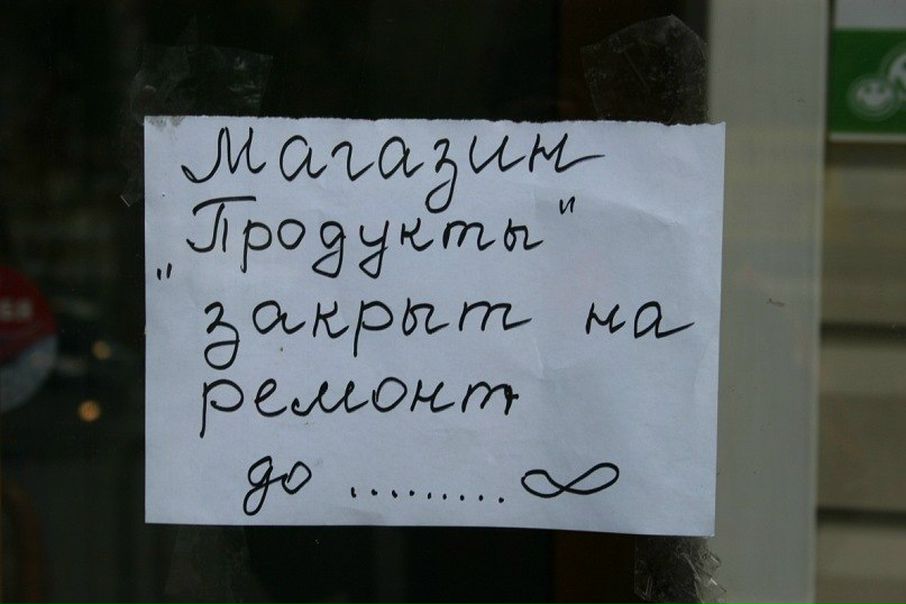 Магазин
„Продукты"
закрыт на
ремонт
до .........∞